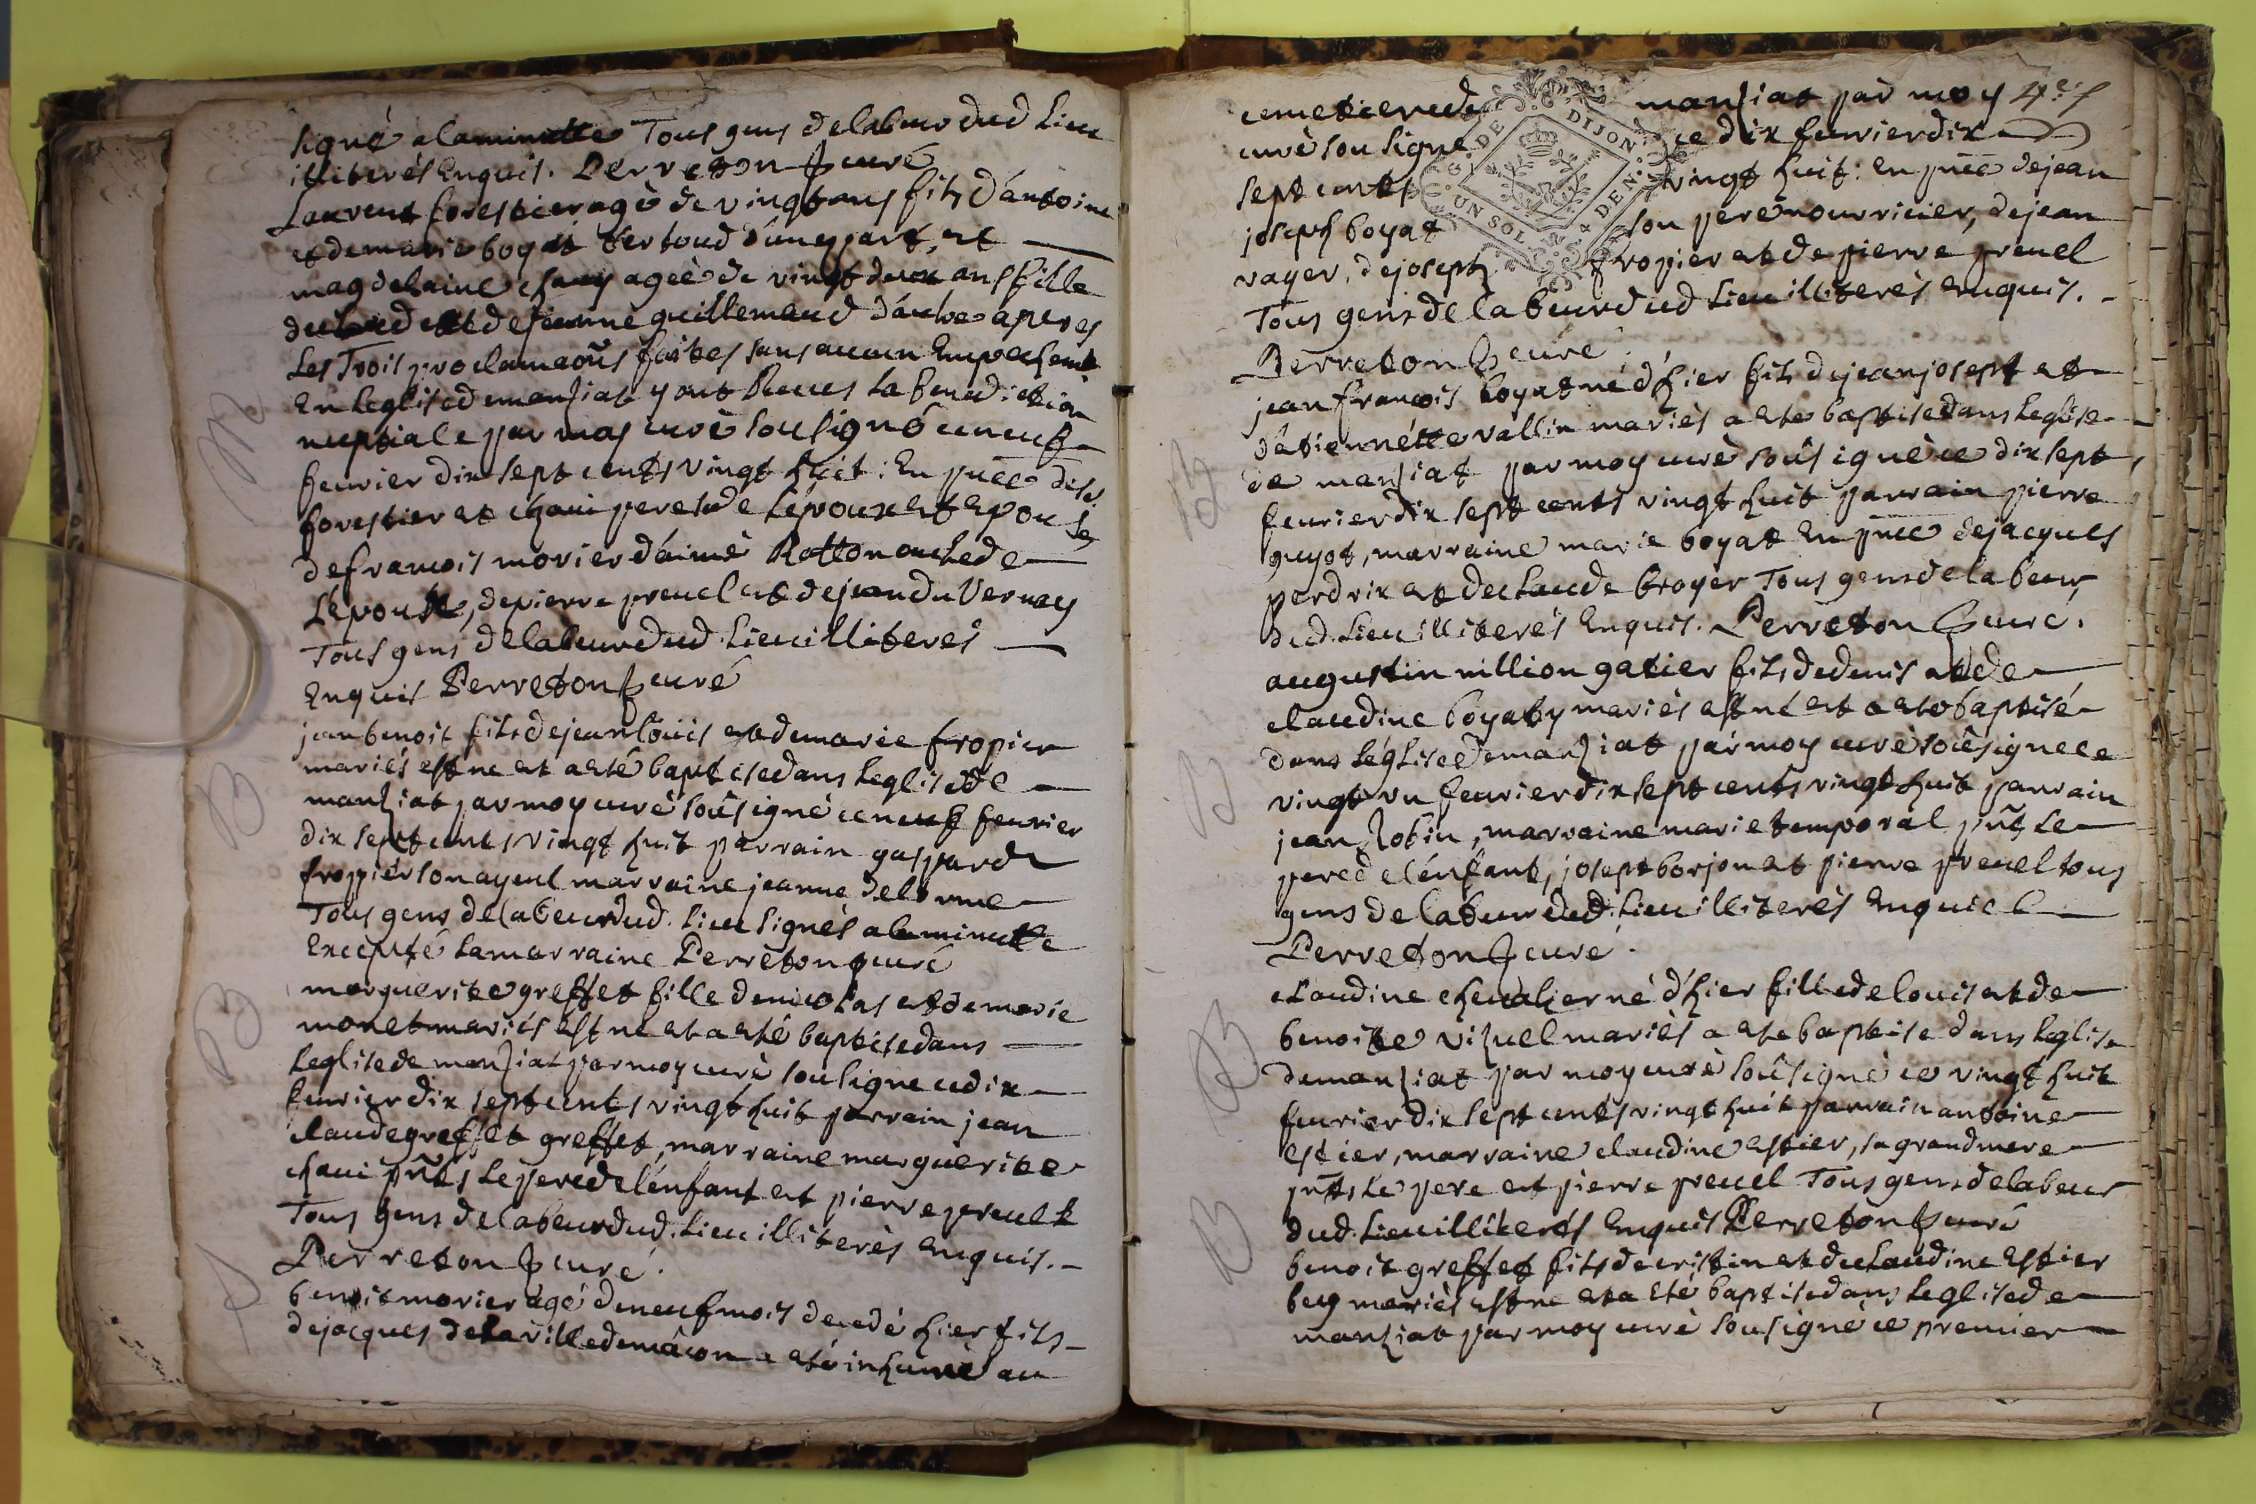 signé a la minutte Tous gens de labeur dud lieu
illiterés Enquis. Perreton curé
Laurent forestier agé de vingt ans fils d'antoine
et de marie boyat d'une part, et
magdelaine chany agée de vingt deux ans fille
de et de jeanne guillemaud d'autre apres
Les Trois proclamaõns faites sans aucun Empechemt
En Leglise de manziat y ont Receus La benediction
nuptiale par moy curé sousigné ce neuf
feuvrier dix sept cents vingt huit: En pñce desd.
forestier et chani peres de l'epoux et epouse
de francois morier d'aimé Rotton oncle de
L'epouse, de pierre preuel et de jean du Vernay
Tous gens de labeur dud. Lieu illiterés
Enquis Perreton curé
M
jean benoit fils de jean louis et de marie fropier
mariés est né et a eté baptisé dans Leglise de
manziat par moy curé sousigné ce neuf feuvrier
dix sept cents vingt huit parrain gaspard
fropier son ayeul marraine jeanne delorme
Tous gens de labeur dud. lieu signés a la minutte
Excepté La marraine Perreton curé
B
marguerite greffet fille de nicolas et de marie
monet mariés est né et a eté baptisé dans
Leglise de manziat par moy curé sousigné ce dix
feuvrier dix sept cents vingt huit parrain jean
claude greffet greffet, marraine marguerite
chani pñts Le pere de l'enfant et pierre preuel
Tous gens de labeur dud. Lieu illiterés enquis.
Perreton curé.
B
benoit morier agé de neuf mois decedé hier fils
de jacques de la ville de mâcon a eté inhumé au
S
cemetiere de manziat par moy 4e f
curé sousigné ce dix feuvrier dix
sept cents vingt huit: En pñce de jean
joseph boyat son pere nourricier, de jean
vayer, de joseph fropier et de pierre preuel
Tous gens de labeur dud Lieu illiterés enquis.
Perreton curé.
G. DE DIJON
UN SOL 4 DEN.
jean francois boyat né d'hier fils de jean joseph et
d'etiennette vallin mariés a eté baptisé dans Leglise
de manziat par moy curé sousigné ce dix sept
feuvrier dix sept cents vingt huit parrain pierre
guyot, marraine marie boyat En pñce de jacques
perdrix et de claude broyer Tous gens de labeur
dud. Lieu illiterés Enquis. Perreton curé.
B
augustin nillion gatier fils de denis et de
claudine boyat y mariés est né et a eté baptisé
dans Léglise de manziat par moy curé sousigné ce
vingt vn feuvrier dix sept cents vingt huit parrain
jean Robin, marraine marie temporal pñts Le
pere de l'enfant, joseph borjon et pierre preuel tous
gens de labeur dud. Lieu illiterés Enquis
Perreton curé.
B
claudine chevalier né d'hier fille de louis et de
benoite vizuel mariés a eté baptisé dans Leglise
de manziat par moy curé sousigné ce vingt huit
feuvrier dix sept cents vingt huit parrain antoine
estier, marraine claudine estier, sa grandmere
pñts Le pere et pierre preuel Tous gens de labeur
dud. Lieu illiterés Enquis Perreton curé
B
benoit greffet fils de cristin et de claudine Estier
bey mariés est né et a eté baptisé dans Leglise de
manziat par moy curé sousigné ce premier
B